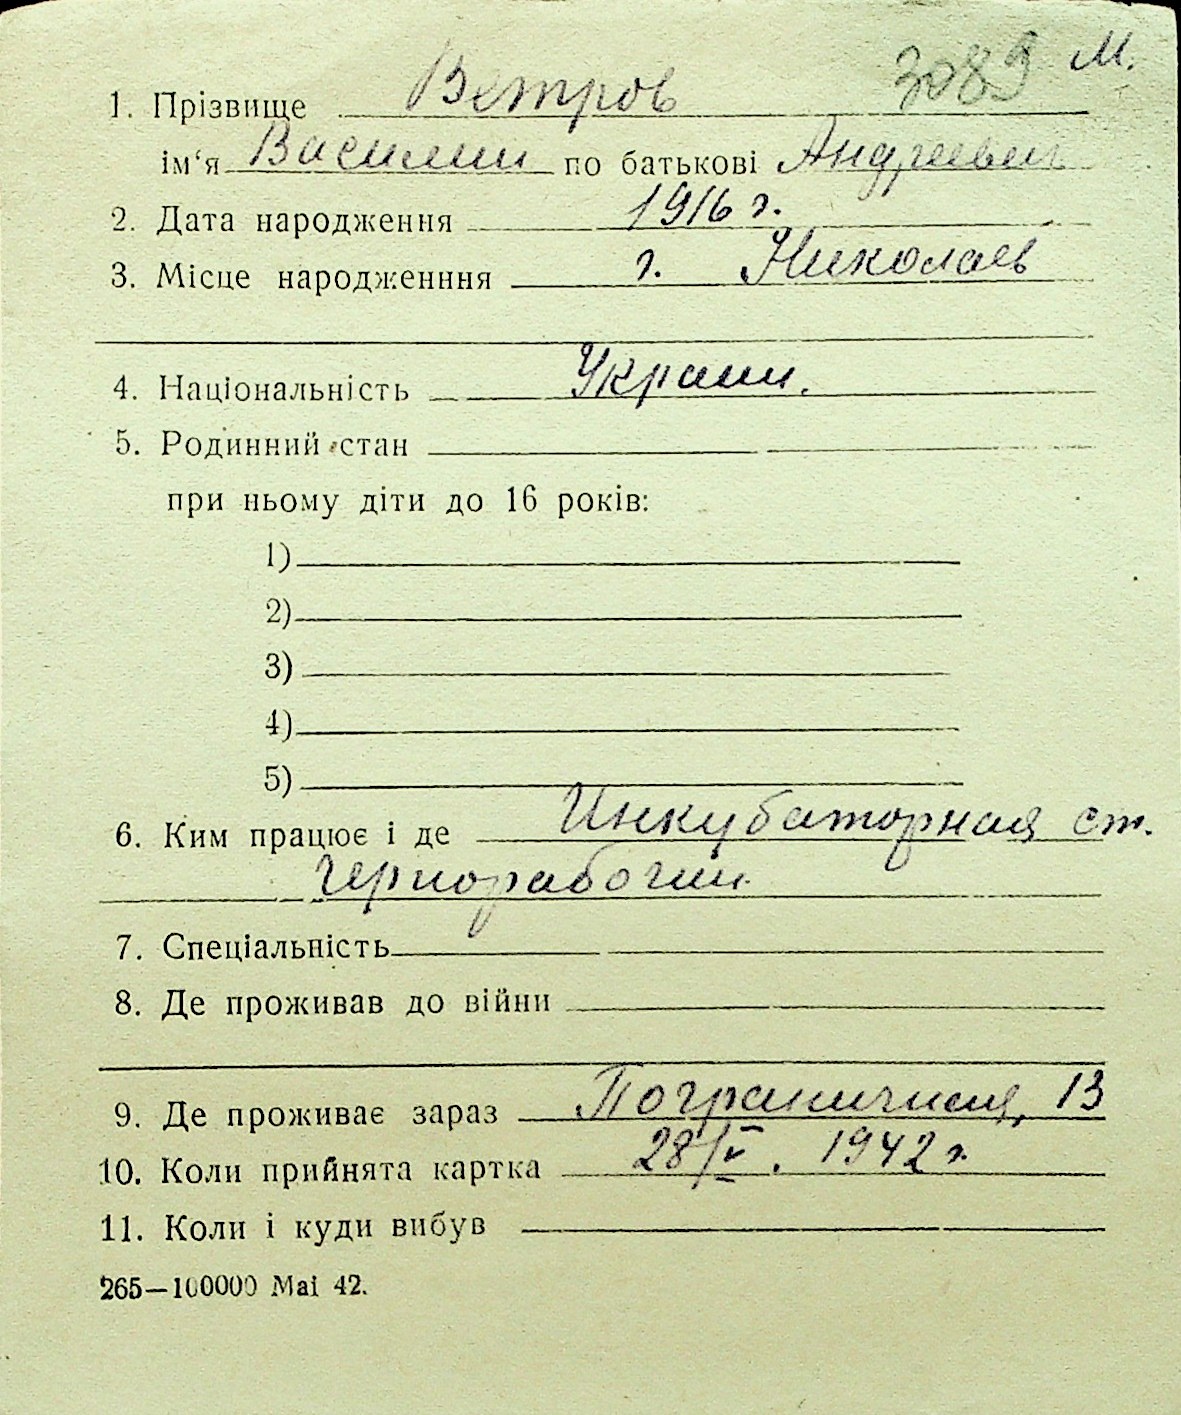 3089 М.
1. Прізвище Ветров
ім'я Василий по батькові Андреевич
2. Дата народження 1916 г.
3. Місце народженння г. Николаев
4. Національність Украин.
5. Родинний стан
при ньому діти до 16 років:
1)
2)
3)
4)
5)
6. Ким працює і де Инкубаторная ст.
Чернорабочий
7. Спеціальність
8. Де проживав до війни
9. Де проживає зараз Пограничная, 13
10. Коли прийнята картка 28/V. 1942 г.
11. Коли і куди вибув
265—100000 Mai 42.